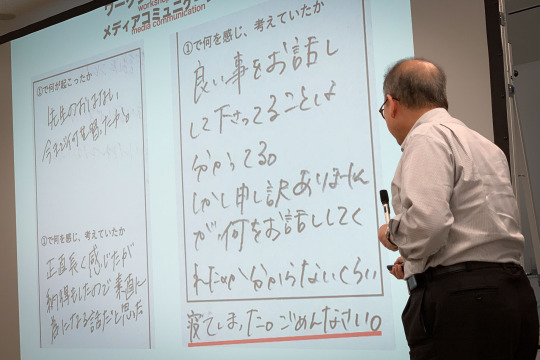 ワークショップ
workshop
メディアコミュニケ
media communication
①で何が起こったか
先生のおはなし
今までで何を思ったか。
②で何を感じ、考えていたか
正直長く感じたが
納得もしたので素直に
為になる話だと思った
①で何を感じ、考えていたか
良い事をお話し
して下さってることは
分かってる。
しかし申し訳ありません
が、何をお話ししてく
れたか分からないくらい
寝てしまった。ごめんなさい。